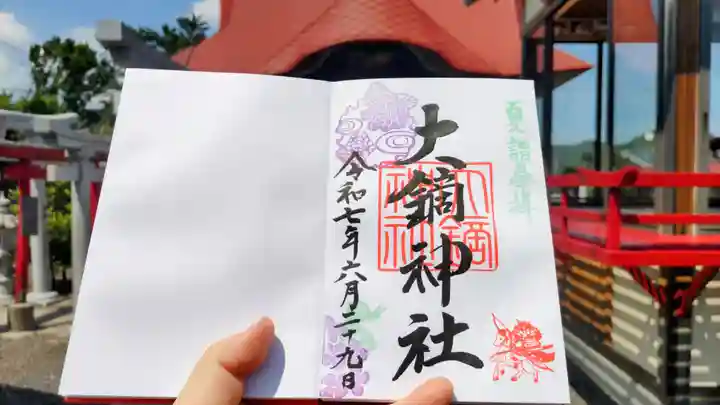 夏詣参拝
大鏑神社
大鏑神社
令和七年六月二十九日